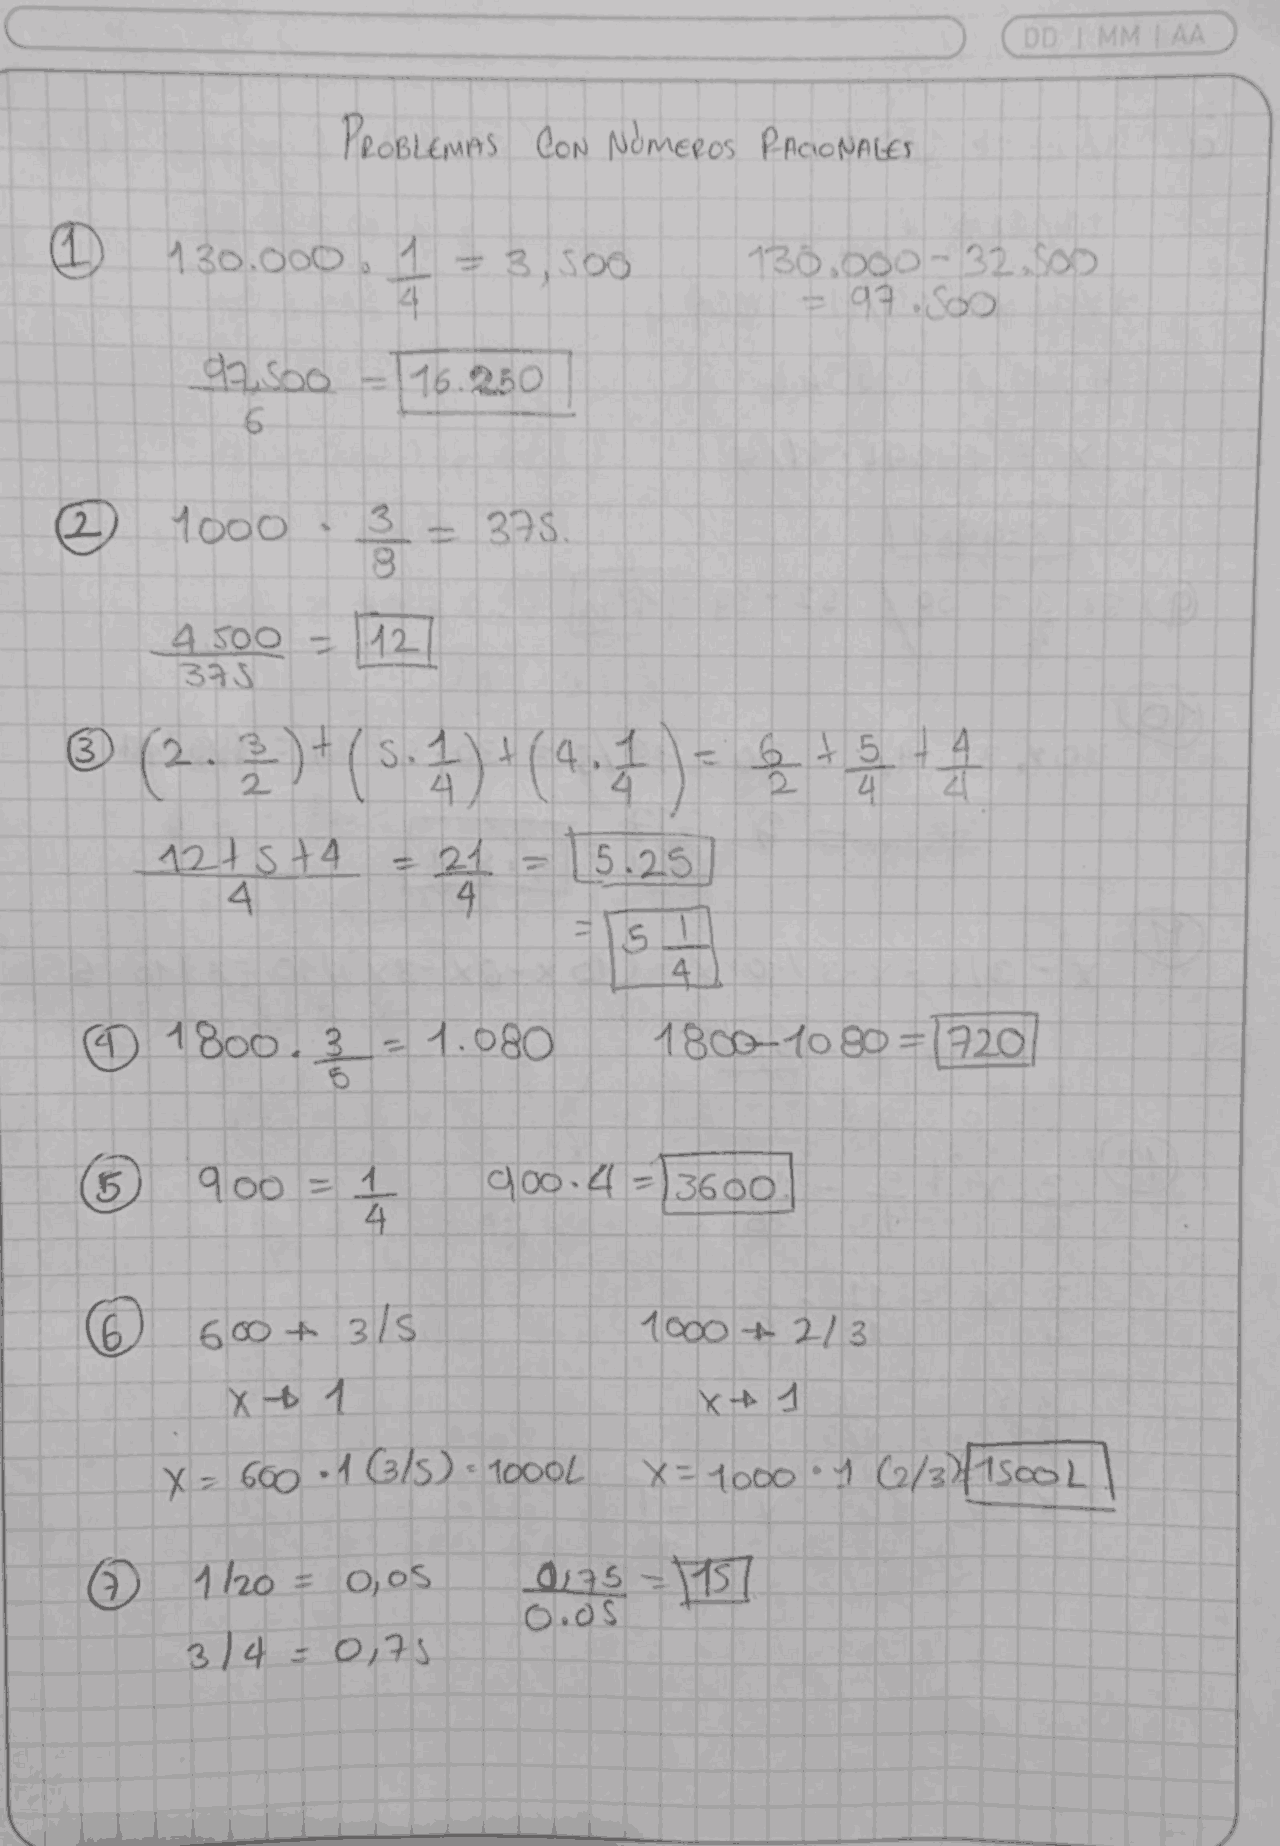 DD | MM | AA
PROBLEMAS CON NÚMEROS RACIONALES
① 130.000 · 1/4 = 3,500 130.000 - 32.500
= 97.500
97.500/6 = 16.250
② 1000 · 3/8 = 375.
4500/375 = 12
③ (2 · 3/2) + (5 · 1/4) + (4 · 1/4) = 6/2 + 5/4 + 4/4
12+5+4/4 = 21/4 = 5.25
= 5 1/4
④ 1800 · 3/5 = 1.080 1800-1080 = 720
⑤ 900 = 1/4 900 · 4 = 3600
⑥ 600 → 3/5 1000 → 2/3
x → 1 x → 1
x = 600 · 1 (3/5) = 1000L x = 1000 · 1 (2/3) 1500L
⑦ 1/20 = 0,05 0,75/0.05 = 15
3/4 = 0,75